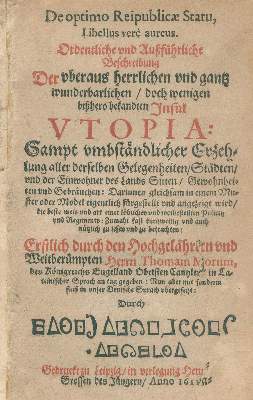 De optimo Reipublicæ Statu,
Libellus verè aureus.
Ordentliche vnd Außführliche
Beschreibung
Der vberaus herrlichen vnd gantz
wunderbarlichen / doch wenigen
bißhero bekandten Insul
VTOPIA:
Sampt vmbständlicher Erzeh-
lung aller derselben Gelegenheiten / Städten /
vnd der Einwohner des Lands Sitten / Gewohnhei-
ten vnd Gebräuchen: Darinnen gleichsam in einem Mu-
ster oder Model eigentlich fürgestellt vnd angezeigt wird /
die beste weis vnd art einer löblichen vnd wolbestellten Policey
vnd Regiments: Zumahl fast kurtzweilig vnd auch
nützlich zu lesen vnd zu betrachten:
Erstlich durch den Hochgelährten vnd
Weitberümpten Herrn Thomam Morum,
des Königreichs Engelland Obersten Cantzler / in La-
teinischer Sprach an tag gegeben: Nun aber mit sonderm
fleiß in vnser Deutsche Sprach vbergesetzt:
Durch
Gedruckt zu Leipzig / in verlegung Hen-
Grossen des Jüngern / Anno